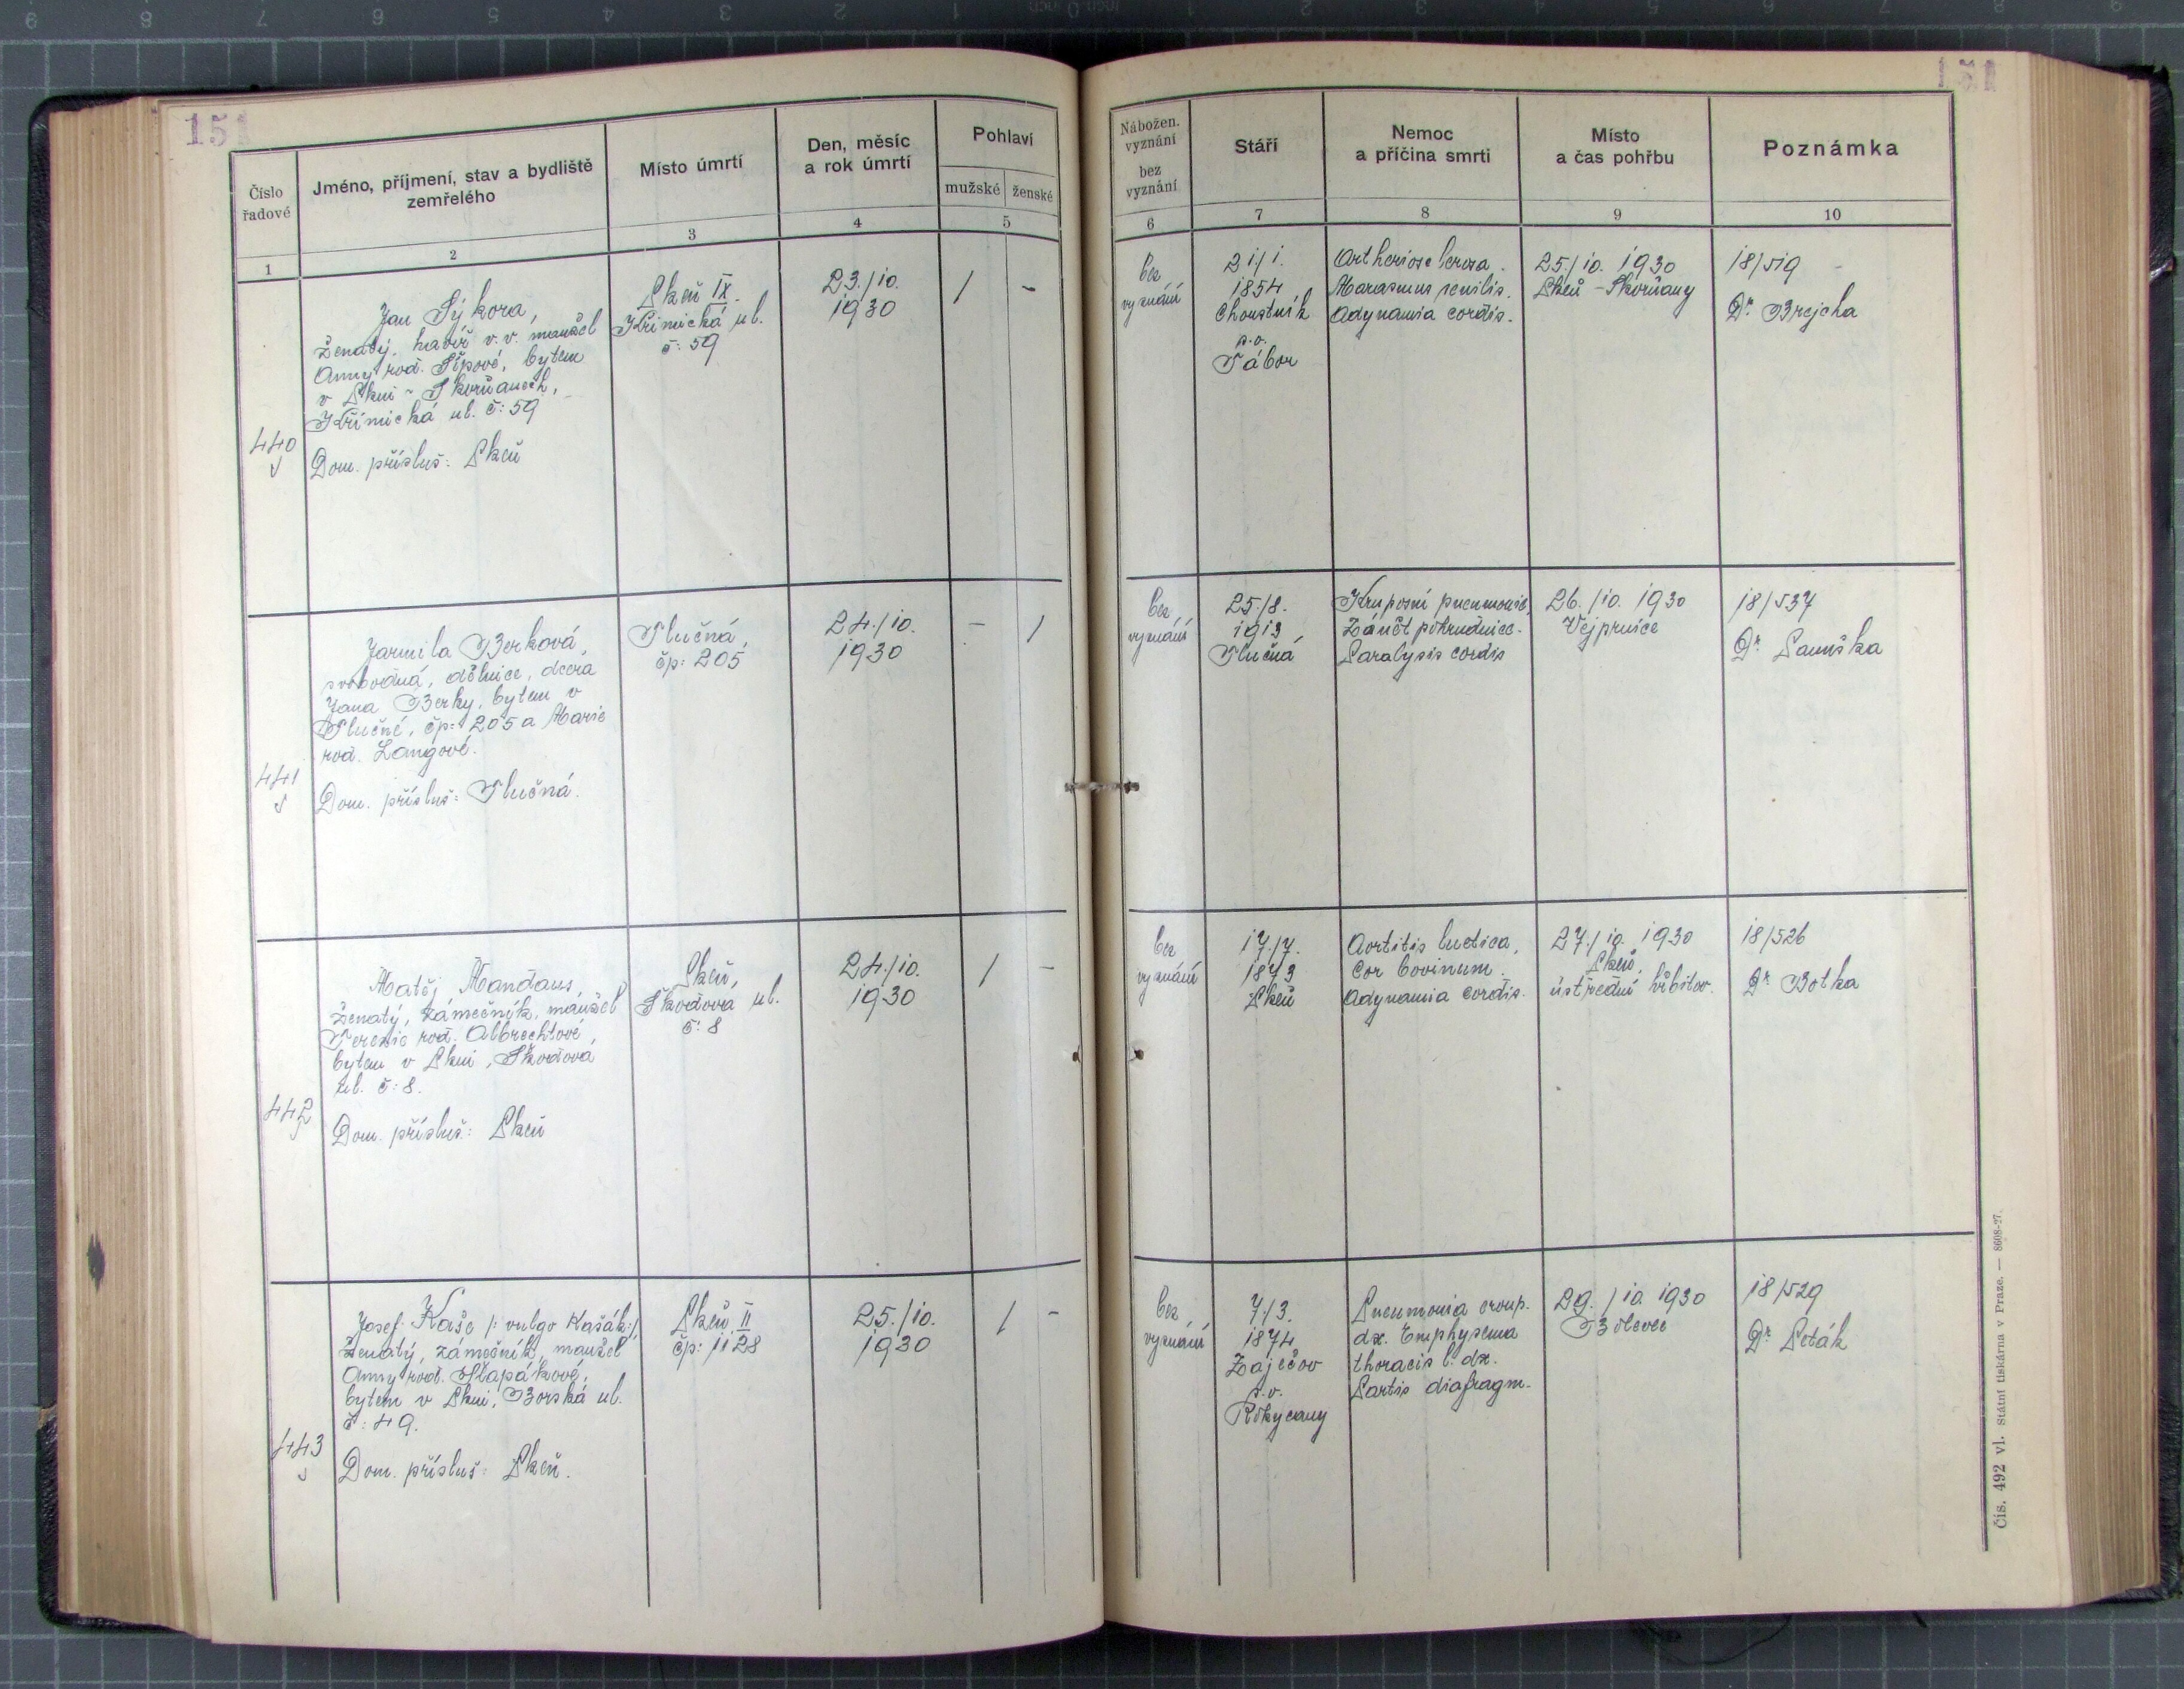 151
Číslo
řadové
Jméno, příjmení, stav a bydliště
zemřelého
Místo úmrtí
Den, měsíc
a rok úmrtí
Pohlaví
mužské ženské
1 2 3 4 5
440
Jan Sýkora,
ženatý, havíř v.v. manžel
Anny rod. Šípové, bytem
v Plzni - Skvrňanech,
Křimická ul. č: 59
Dom. přísluš: Plzeň
Plzeň IX.
Křimická ul.
č: 59
23./10.
1930
/ -
441
Jarmila Berková,
svobodná, dělnice, dcera
Jana Berky, bytem v
Tlučné, čp: 205 a Marie
rod. Langové.
Dom. přísluš: Tlučná.
Tlučná,
čp: 205
24./10.
1930
- /
442
Matěj Mandaus,
ženatý, zámečník, manžel
Terezie rod. Albrechtové,
bytem v Plzni, Škodova
ul. č: 8.
Dom. přísluš: Plzeň
Plzeň,
Škodova ul.
č: 8
24./10.
1930
/ -
443
Josef Kaše /: vulgo Kašák:/,
ženatý, zámečník, manžel
Anny rod.
bytem v Plzni, Borská ul.
č: 49.
Dom. přísluš: Plzeň.
Plzeň II
čp: 1128
25./10.
1930
/ -
151
Nábožen.
vyznání
bez
vyznání
Stáří
Nemoc
a příčina smrti
Místo
a čas pohřbu
Poznámka
6 7 8 9 10
bez
vyznání
21/1.
1854
Choustník
p.o.
Tábor
Marasmus senilis.
Adynamia cordis.
25./10. 1930
Plzeň - Skvrňany
18/519
Dr. Brejcha
bez
vyznání
25./8.
1913
Tlučná
Kruposní pneumonie,
Zánět pohrudnice.
Paralysis cordis
26./10. 1930
Vejprnice
18/537
Dr.
bez
vyznání
17./7.
1873
Plzeň
Aortitis luetica,
Cor bovinum.
Adynamia cordis.
27./10. 1930
Plzeň,
ústřední hřbitov.
18/526
Dr. Botka
bez
vyznání
7./3.
1874
Zaječov
p.o.
Rokycany
Pneumonia croup.
dx. Emphysema
thoracis l. dx.
Partis diafragm.
29./10. 1930
Bolevec
18/529
Dr. Peták
Čís. 492 vl. Státní tiskárna v Praze. — 8608-27.